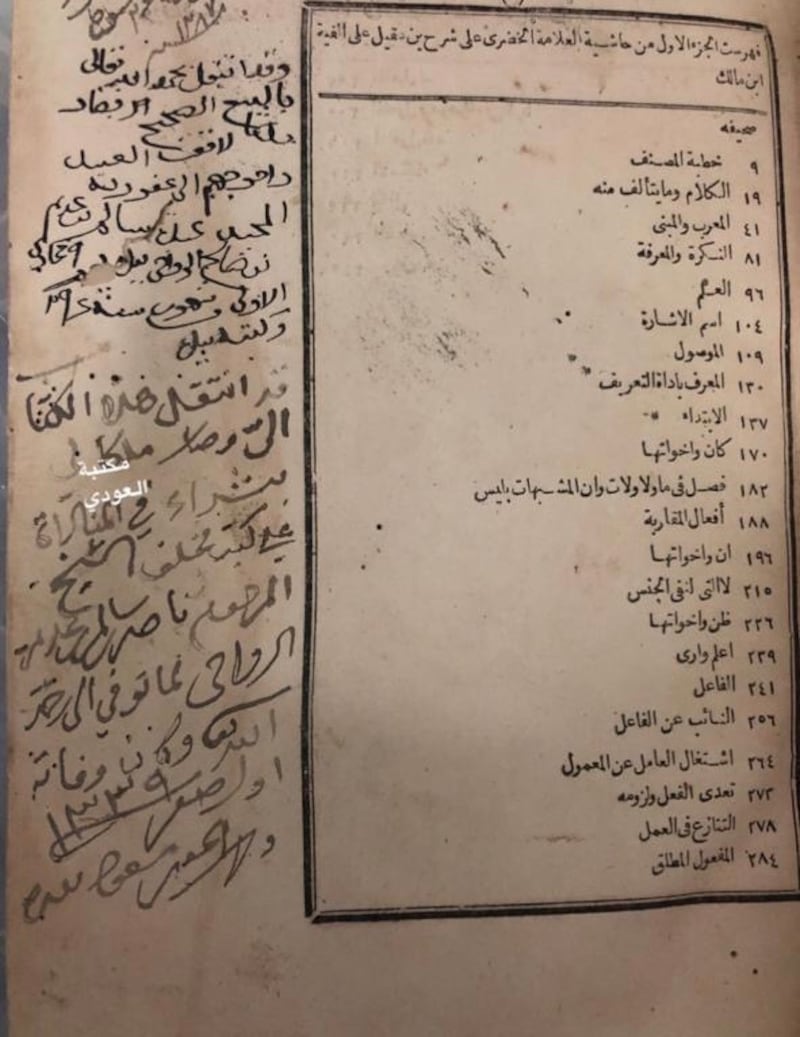 فهرست الجزء الاول من حاشية العلامة الخضرى على شرح بن عقيل على الفية
ابن مالك
صحيفه
٩ خطبة المصنف
١٩ الكلام ومايتألف منه
٤١ المعرب والمبنى
٨١ النكرة والمعرفة
٩٦ العلم
١٠٤ اسم الاشارة
١٠٩ الموصول
١٣٠ المعرف باداة التعريف
١٣٧ الابتداء
١٧٠ كان واخواتها
١٨٢ فصل فى ما ولا ولات وان المشبهات بليس
١٨٨ أفعال المقاربة
١٩٦ ان واخواتها
٢١٥ لا التى لنفى الجنس
٢٢٦ ظن واخواتها
٢٣٩ اعلم وارى
٢٤١ الفاعل
٢٥٦ النائب عن الفاعل
٢٦٤ اشتغال العامل عن المعمول
٢٧٣ تعدى الفعل ولزومه
٢٧٨ التنازع فى العمل
٢٨٤ المفعول المطلق
١٣٨٧
وقد انتقل بحمد الله تعالى
بالبيع الصحيح
الاولى سنة
قد انتقل هذا الكتاب
الي وصار ملكا لي
بشراء في المناداة
على كتب مخلف الشيخ
المرحوم ناصر بن سالم بن
الرواحي لما توفي الى رحمة
الله وكان وفاته
اول صفر ١٣٣٩
مكتبة
العودي